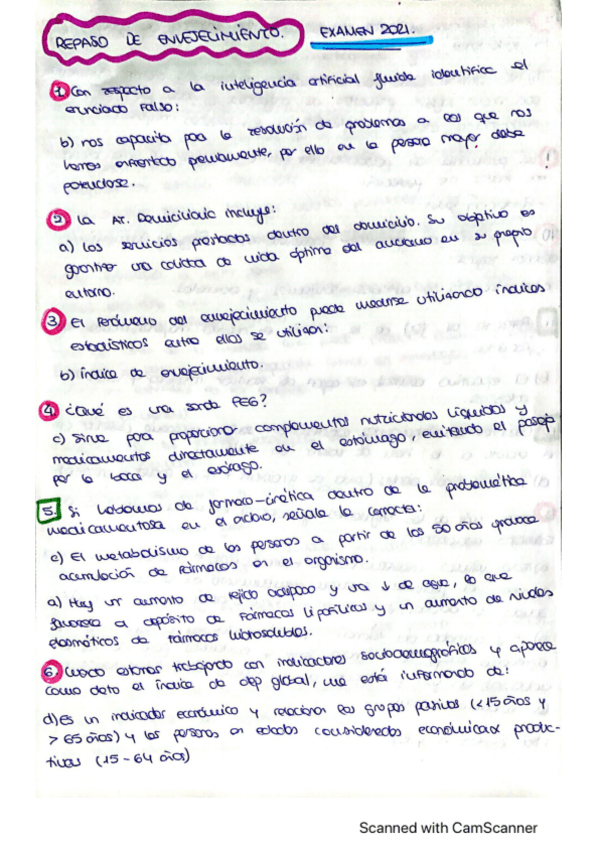 REPASO DE ENVEJECIMIENTO. EXAMEN 2021.
1. Con respecto a la inteligencia artificial fluida identifica el
enunciado falso:
b) nos capacita para la resolución de problemas a los que nos
hemos enfrentado previamente, por ello en la persona mayor debe
potenciarse.
2. La At. Domiciliaria incluye:
a) Los servicios prestados dentro del domicilio. Su objetivo es
garantizar una calidad de vida óptima del anciano en su propio
entorno.
3. El fenómeno del envejecimiento puede medirse utilizando índices
estadísticos entre ellos se utilizan:
b) índice de envejecimiento.
4. ¿Qué es una sonda PEG?
c) Sirve para proporcionar complementos nutricionales líquidos y
medicamentos directamente en el estómago, evitando el pasaje
por la boca y el esófago.
5. Si hablamos de farmaco-cinética dentro de la problemática
medicamentosa en el anciano, señale la correcta:
c) El metabolismo de las personas a partir de los 50 años
acumulación de fármacos en el organismo.
a) Hay un aumento de tejido adiposo y una ↓ de agua, lo que
favorece el depósito de fármacos lipofílicos y un aumento de niveles
plasmáticos de fármacos hidrosolubles.
6. Cuando estamos trabajando con indicadores sociodemográficos y aparece
como dato el índice de dep global, me está informando de:
d) Es un indicador económico y relaciona los grupos pasivos (<15 años y
> 65 años) y las personas en edades consideradas económicas produc-
tivas (15-64 años)
Scanned with CamScanner